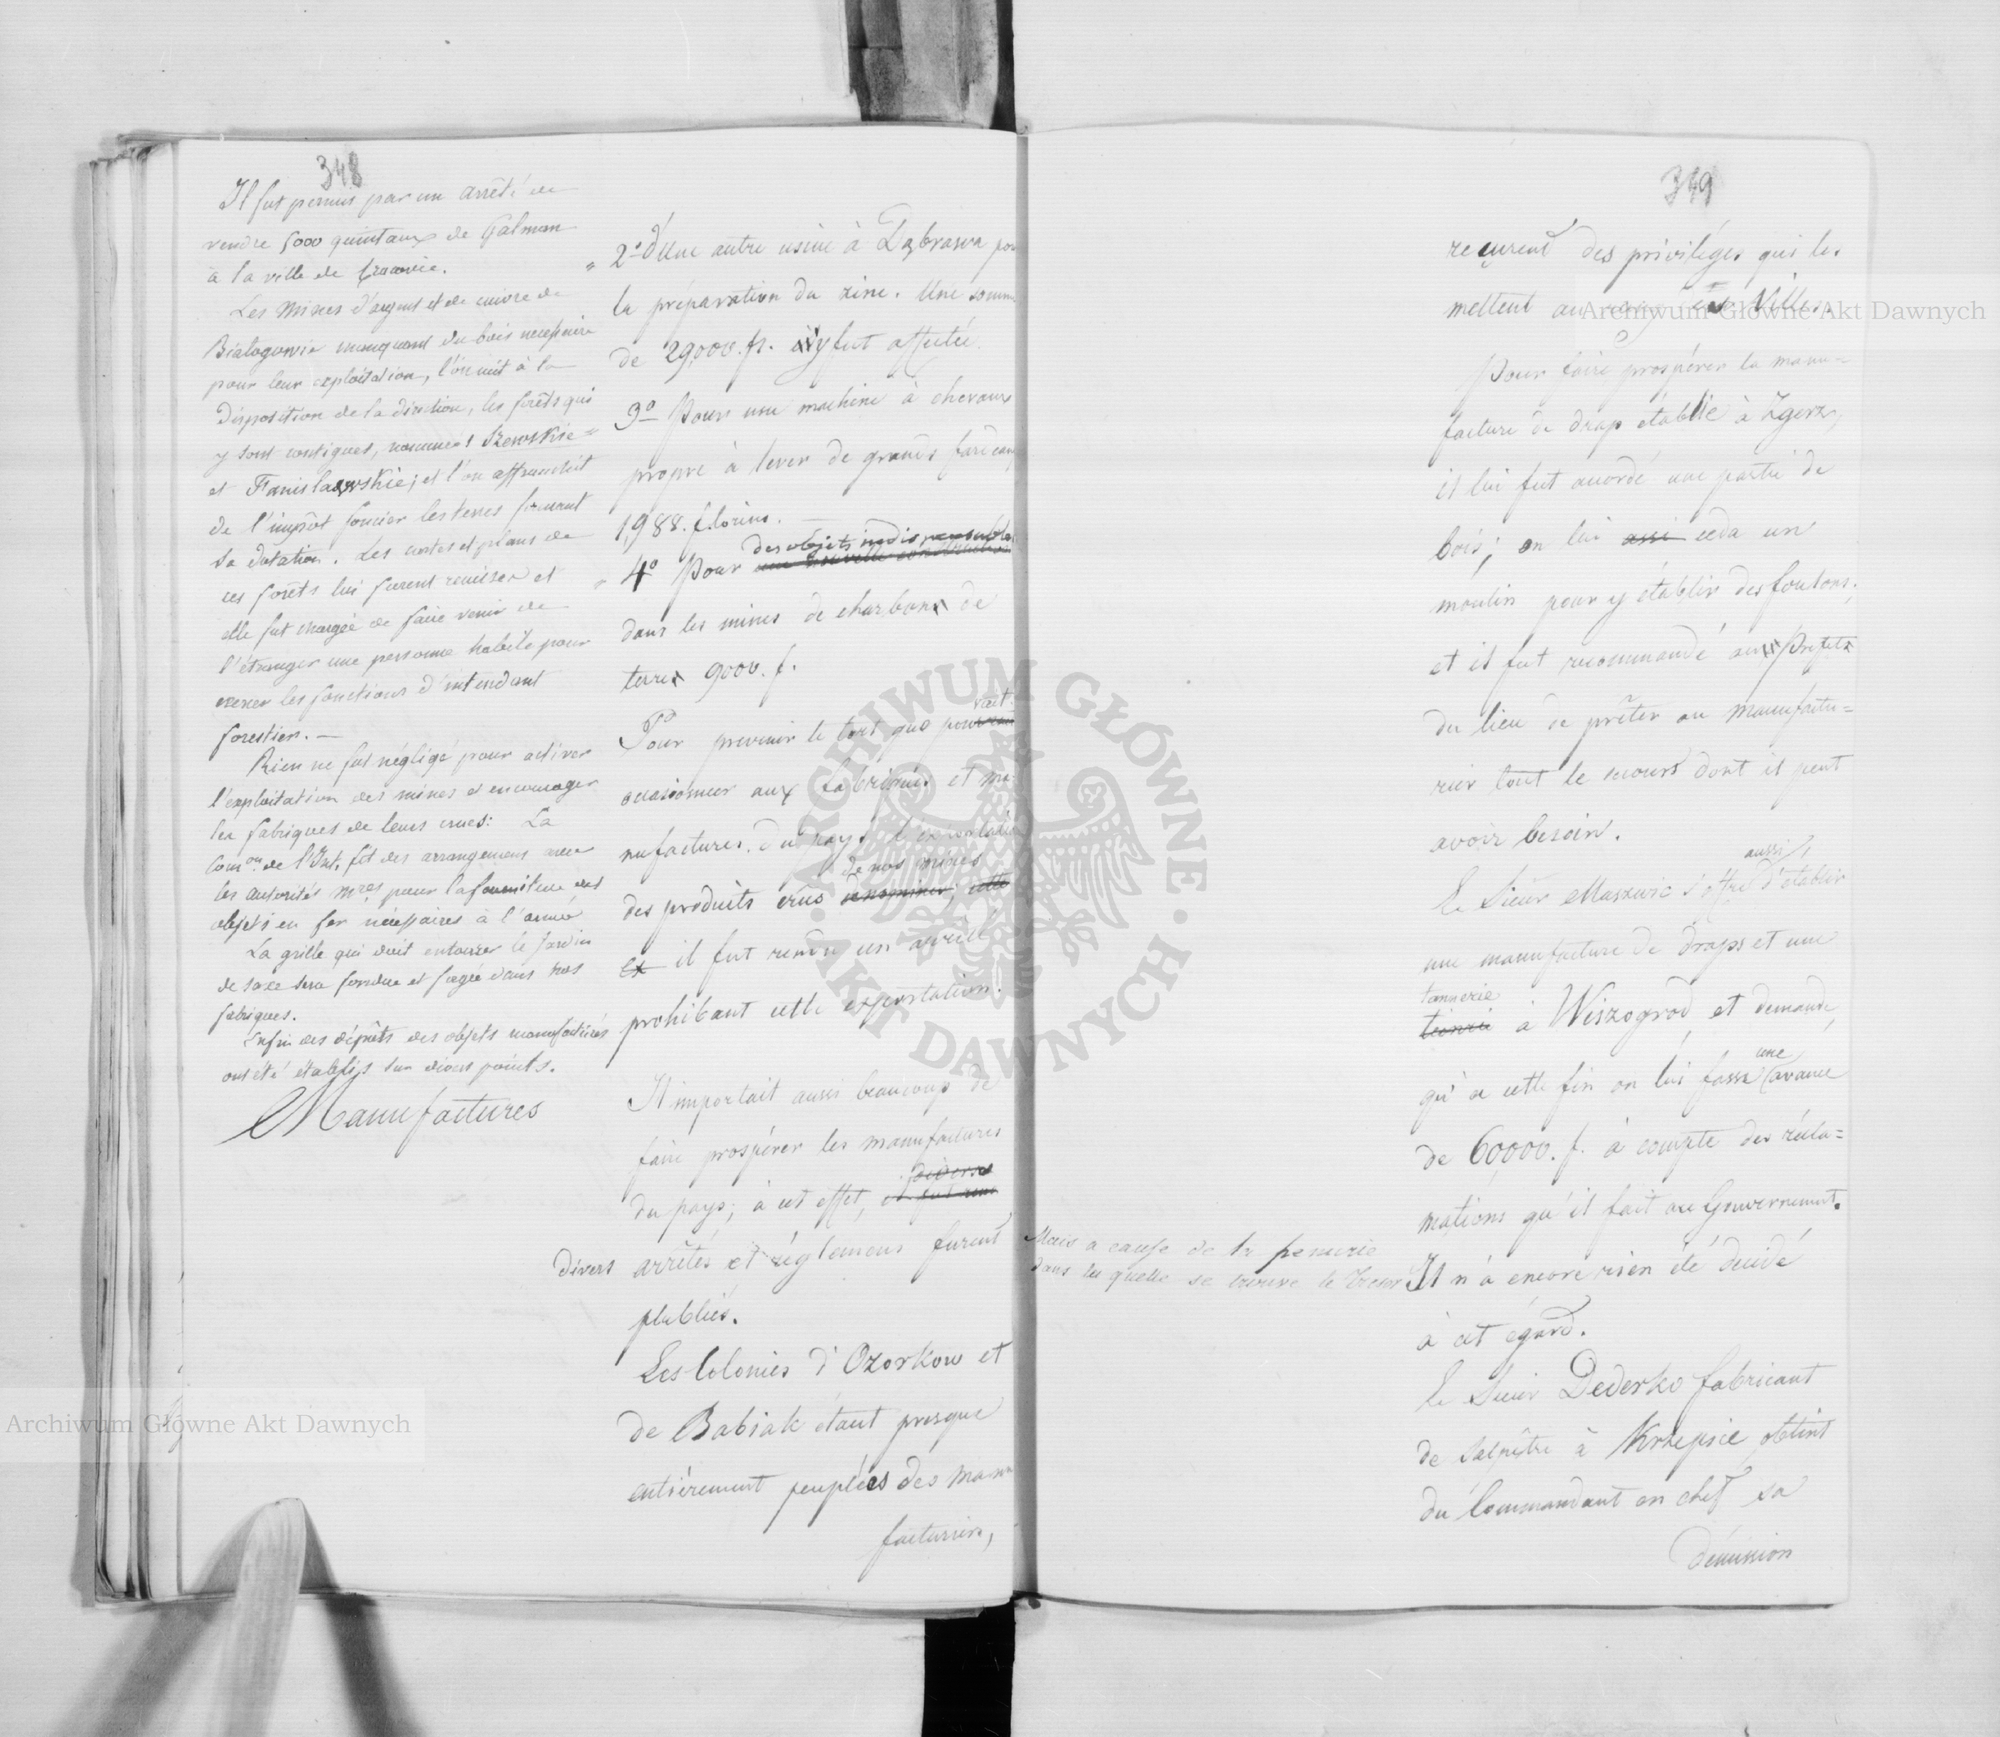 348
Il fut permis par un arrêté de
vendre 5000 quintaux de Galman
à la ville de Cracovie.
Les Mines d'argent et de cuivre de
Bialogonie manquant du bois necessaire
pour leur exploitation, l'on mit à la
disposition de la direction, les forêts qui
y sont contigues, nommées
et l'on affranchit
de l'impôt foncier les terres formant
sa dotation. Les cartes et plans de
ces forêts lui furent remises et
elle fut chargée de faire venir de
l'étranger une personne habile pour
exercer les fonctions d'intendant
forestier. —
Rien ne fut négligé pour activer
l'exploitation des mines et encourager
les fabriques de leurs crues: La
Com.on de l'Int. fit des arrangemens avec
les autorités m.res pour la fourniture des
objets en fer nécessaires à l'armée
La grille qui doit entourer le Jardin
de Saxe sera fondue et forgée dans nos
fabriques.
Enfin des dépôts des objets manufacturés
ont été établis sur divers points.
Manufactures
2° d'Une autre usine à Dąbrowa pour
la préparation du zinc. Une somme
de 29,000. fl. y fut affectée.
3° Pour une machine à chevaux
propre à lever de grands fardeaux
1,988. florins.
des objets indispensables
4° Pour une nouvelle construction
dans les mines de charbon de
terre 9000. f.
Pour prevenir le tort que pourroit
occasionner aux fabriques et ma-
nufactures du pays l'exportation
de nos mines
des produits crus
il fut rendu un arrêté
prohibant cette exportation.
Il importait aussi beaucoup de
faire prospérer les manufactures
du pays; à cet effet,
divers arrêtés et réglemens furent
publiés.
Les Colonies d'Ozorkow et
de Babiak étant presque
entièrement peuplées des manu
facturiers,
349
reçurent des privilèges qui les
mettent au rang des Villes.
Pour faire prospérer la manu-
facture de drap établie à Zgerz,
il lui fut accordé une partie de
bois; on lui ceda un
moulin pour y établir des foulons;
et il fut recommandé au Prefet
du lieu de prêter au manufactu=
rier tout le secours dont il peut
avoir besoin.
aussi
Le Sieur s'offre d'établir
une manufacture de draps et une
tannerie
à Wiszogrod, et demande,
une
qu'a cette fin on lui fasse avance
de 60,000. f. à compte des récla=
mations qu'il fait au Gouvernement.
Mais a cause de la penurie
dans la quelle se trouve le Trésor
Il n'a encore rien été décidé
à cet égard.
Le Sieur Dederko fabricant
de Salpêtre à Krzepice, obtint
du Commandant en chef sa
démission
ARCHIWUM GŁÓWNE · AKT DAWNYCH ·
Archiwum Główne Akt Dawnych
Archiwum Główne Akt Dawnych